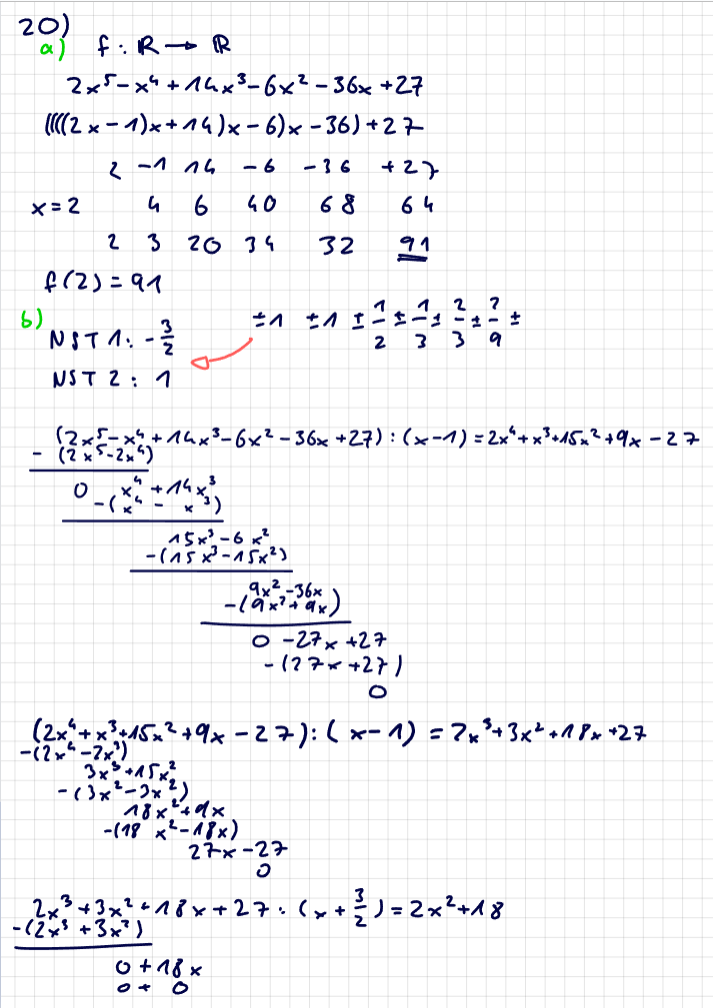 20)
a) f : ℝ → ℝ
2x⁵ - x⁴ + 14x³ - 6x² - 36x + 27
((((2x - 1)x + 14)x - 6)x - 36) + 27
2 -1 14 -6 -36 +27
x = 2 4 6 40 68 64
2 3 20 34 32 91
f(2) = 91
b) NST 1: -3/2 ±1 ±1 ± 1/2 ± 1/3 ± 2/3 ± 2/9 ±
NST 2: 1
(2x⁵ - x⁴ + 14x³ - 6x² - 36x + 27) : (x - 1) = 2x⁴ + x³ + 15x² + 9x - 27
- (2x⁵ - 2x⁴)
0 x⁴ + 14x³
-(x⁴ - x³)
15x³ - 6x²
-(15x³ - 15x²)
9x² - 36x
-(9x² + 9x)
0 - 27x + 27
-(27x + 27)
0
(2x⁴ + x³ + 15x² + 9x - 27) : (x - 1) = 2x³ + 3x² + 18x + 27
-(2x⁴ - 2x³)
3x³ + 15x²
-(3x² - 3x²)
18x² + 9x
-(18x² - 18x)
27x - 27
0
2x³ + 3x² + 18x + 27 : (x + 3/2) = 2x² + 18
-(2x³ + 3x²)
0 + 18x
0 + 0